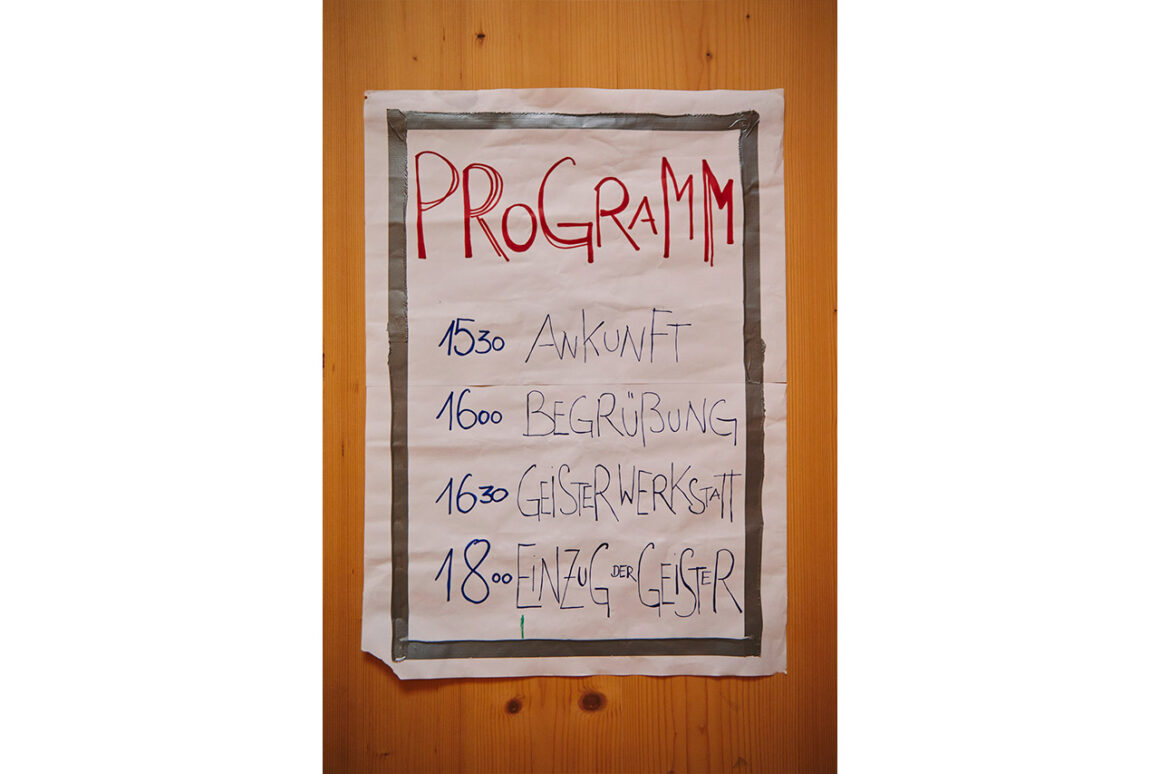 PROGRAMM
1530 ANKUNFT
1600 BEGRÜßUNG
1630 GEISTERWERKSTATT
1800 EINZUG DER GEISTER